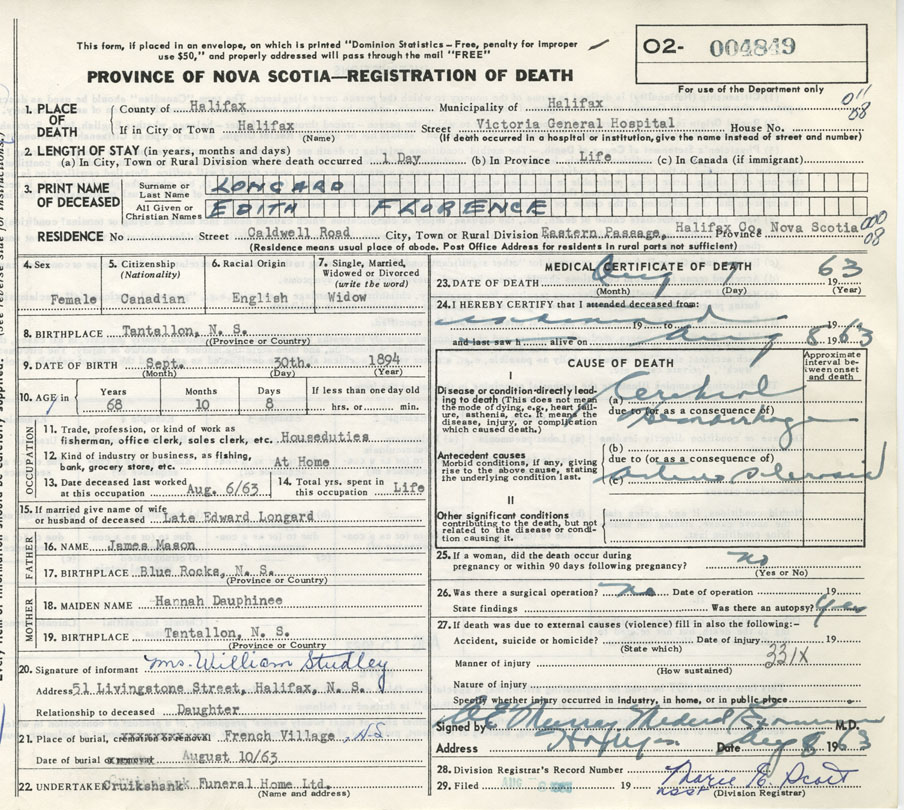 This form, if placed in an envelope, on which is printed "Dominion Statistics – Free, penalty for improper
use $50," and properly addressed will pass through the mail "FREE"
O2- 004849
PROVINCE OF NOVA SCOTIA—REGISTRATION OF DEATH
For use of the Department only
1. PLACE OF DEATH
County of Halifax Municipality of Halifax
If in City or Town Halifax Street Victoria General Hospital House No.
(Name) (If death occurred in a hospital or institution, give the name instead of street and number)
2. LENGTH OF STAY (in years, months and days)
(a) In City, Town or Rural Division where death occurred 1 Day (b) In Province Life (c) In Canada (if immigrant)
3. PRINT NAME OF DECEASED
Surname or Last Name LONGARD
All Given or Christian Names EDITH FLORENCE
RESIDENCE No Street Caldwell Road City, Town or Rural Division Eastern Passage, Halifax Co. Province Nova Scotia
(Residence means usual place of abode. Post Office Address for residents in rural parts not sufficient)
4. Sex
Female
5. Citizenship (Nationality)
Canadian
6. Racial Origin
English
7. Single, Married, Widowed or Divorced (write the word)
Widow
8. BIRTHPLACE Tantallon, N. S.
(Province or Country)
9. DATE OF BIRTH Sept. 30th. 1894
(Month) (Day) (Year)
10. AGE in Years Months Days If less than one day old
68 10 8 hrs. or min.
OCCUPATION
11. Trade, profession, or kind of work as
fisherman, office clerk, sales clerk, etc. Houseduties
12. Kind of industry or business, as fishing,
bank, grocery store, etc. At Home
13. Date deceased last worked at this occupation Aug. 6/63
14. Total yrs. spent in this occupation Life
15. If married give name of wife
or husband of deceased Late Edward Longard
FATHER
16. NAME James Mason
17. BIRTHPLACE Blue Rocks, N. S.
(Province or Country)
MOTHER
18. MAIDEN NAME Hannah Dauphinee
19. BIRTHPLACE Tantallon, N. S.
(Province or Country)
20. Signature of informant Mrs. William Studley
Address 51 Livingstone Street, Halifax, N. S.
Relationship to deceased Daughter
21. Place of burial, cremation or removal French Village, N.S.
Date of burial or removal August 10/63
22. UNDERTAKER Cruikshank Funeral Home Ltd.
(Name and address)
MEDICAL CERTIFICATE OF DEATH
23. DATE OF DEATH Aug 7 1963
(Month) (Day) (Year)
24. I HEREBY CERTIFY that I attended deceased from:
19 to 19
and last saw h alive on Aug 8 1963
CAUSE OF DEATH
Approximate interval between onset and death
I
Disease or condition directly leading to death (This does not mean
the mode of dying, e.g., heart failure, asthenia, etc. It means the
disease, injury, or complication which caused death.)
(a) Cerebral
due to (or as a consequence of)
Hemorrhage
Antecedent causes
Morbid conditions, if any, giving rise to the above cause, stating
the underlying condition last.
(b)
due to (or as a consequence of)
(c)
II
Other significant conditions
contributing to the death, but not related to the disease or condition causing it.
25. If a woman, did the death occur during
pregnancy or within 90 days following pregnancy? no
(Yes or No)
26. Was there a surgical operation? no Date of operation 19
State findings Was there an autopsy? yes
27. If death was due to external causes (violence) fill in also the following:–
Accident, suicide or homicide? Date of injury 19
(State which)
Manner of injury 331X
(How sustained)
Nature of injury
Specify whether injury occurred in industry, in home, or in public place
Signed by Murray Medical Examiner M.D.
Address Halifax Date Aug 8 1963
28. Division Registrar's Record Number
29. Filed 19 Marie E. Scott
(Division Registrar)